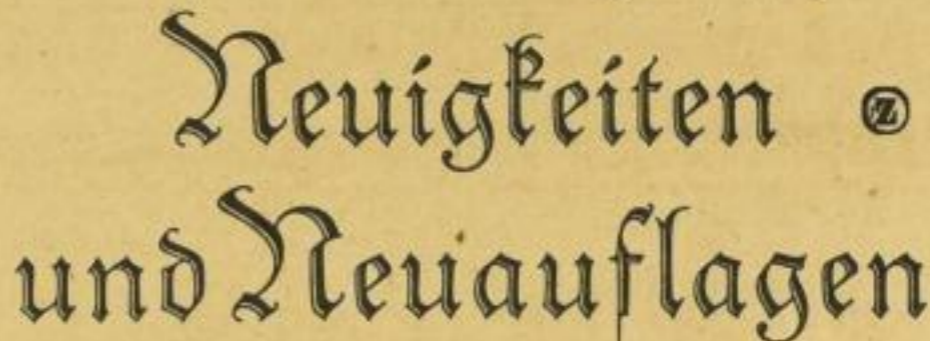 Neuigkeiten Ⓩ
und Neuauflagen